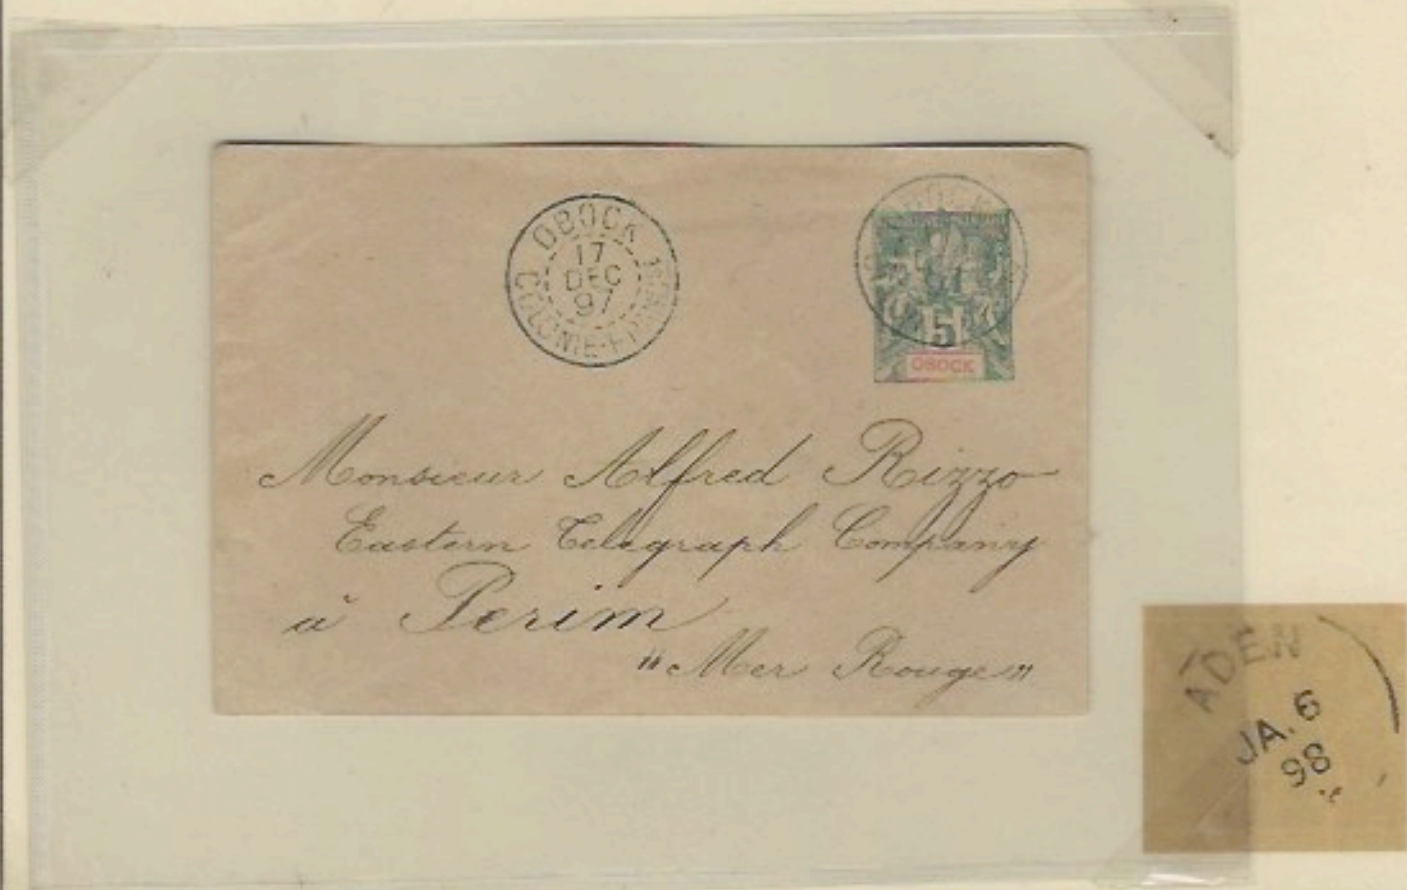 OBOCK
17
DEC
97
COLONIE-FRANCSE
5
OBOCK
Monsieur Alfred Rizzo
Eastern Telegraph Company
à Perim
"Mer Rouge"
ADEN
JA. 6
98